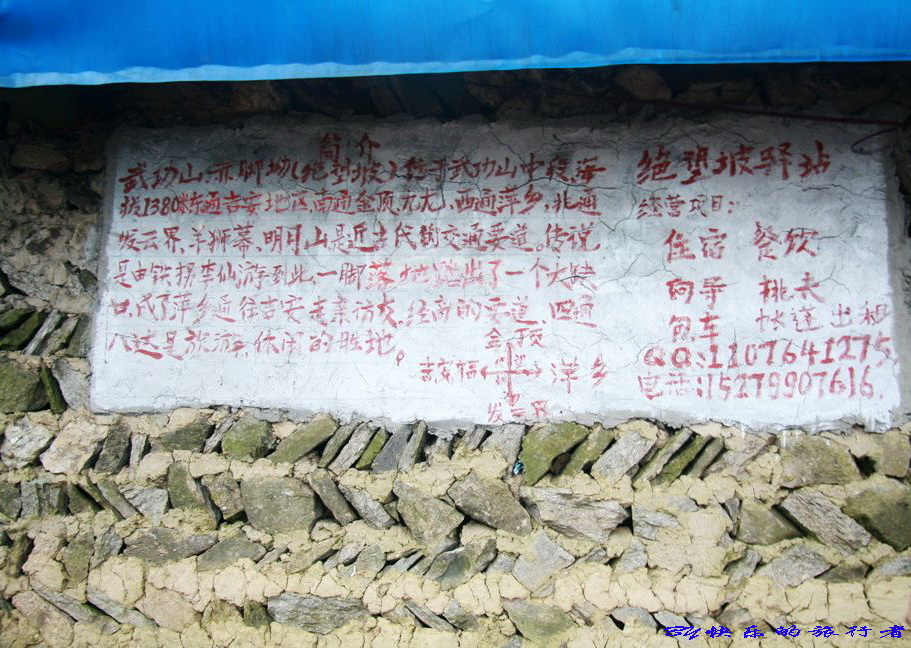 简介
武功山:赤脚坳(绝望坡)位于武功山中段海
拔1380米东通吉安地区南通金顶九龙,西通萍乡,北通
发云界,羊狮幕,明月山是近古代的交通要道。传说
是由铁拐李仙游到此,一脚落地踏出了一个大缺
口,成了萍乡通往吉安走亲访友,经商的要道,四通
八达是旅游,休闲的胜地。
金顶
吉安福 萍乡
发云界
绝望坡驿站
经营项目:
住宿 餐饮
向导 挑夫
包车 帐篷出租
QQ:1107641275
电话:15279907616
BY快乐的旅行者